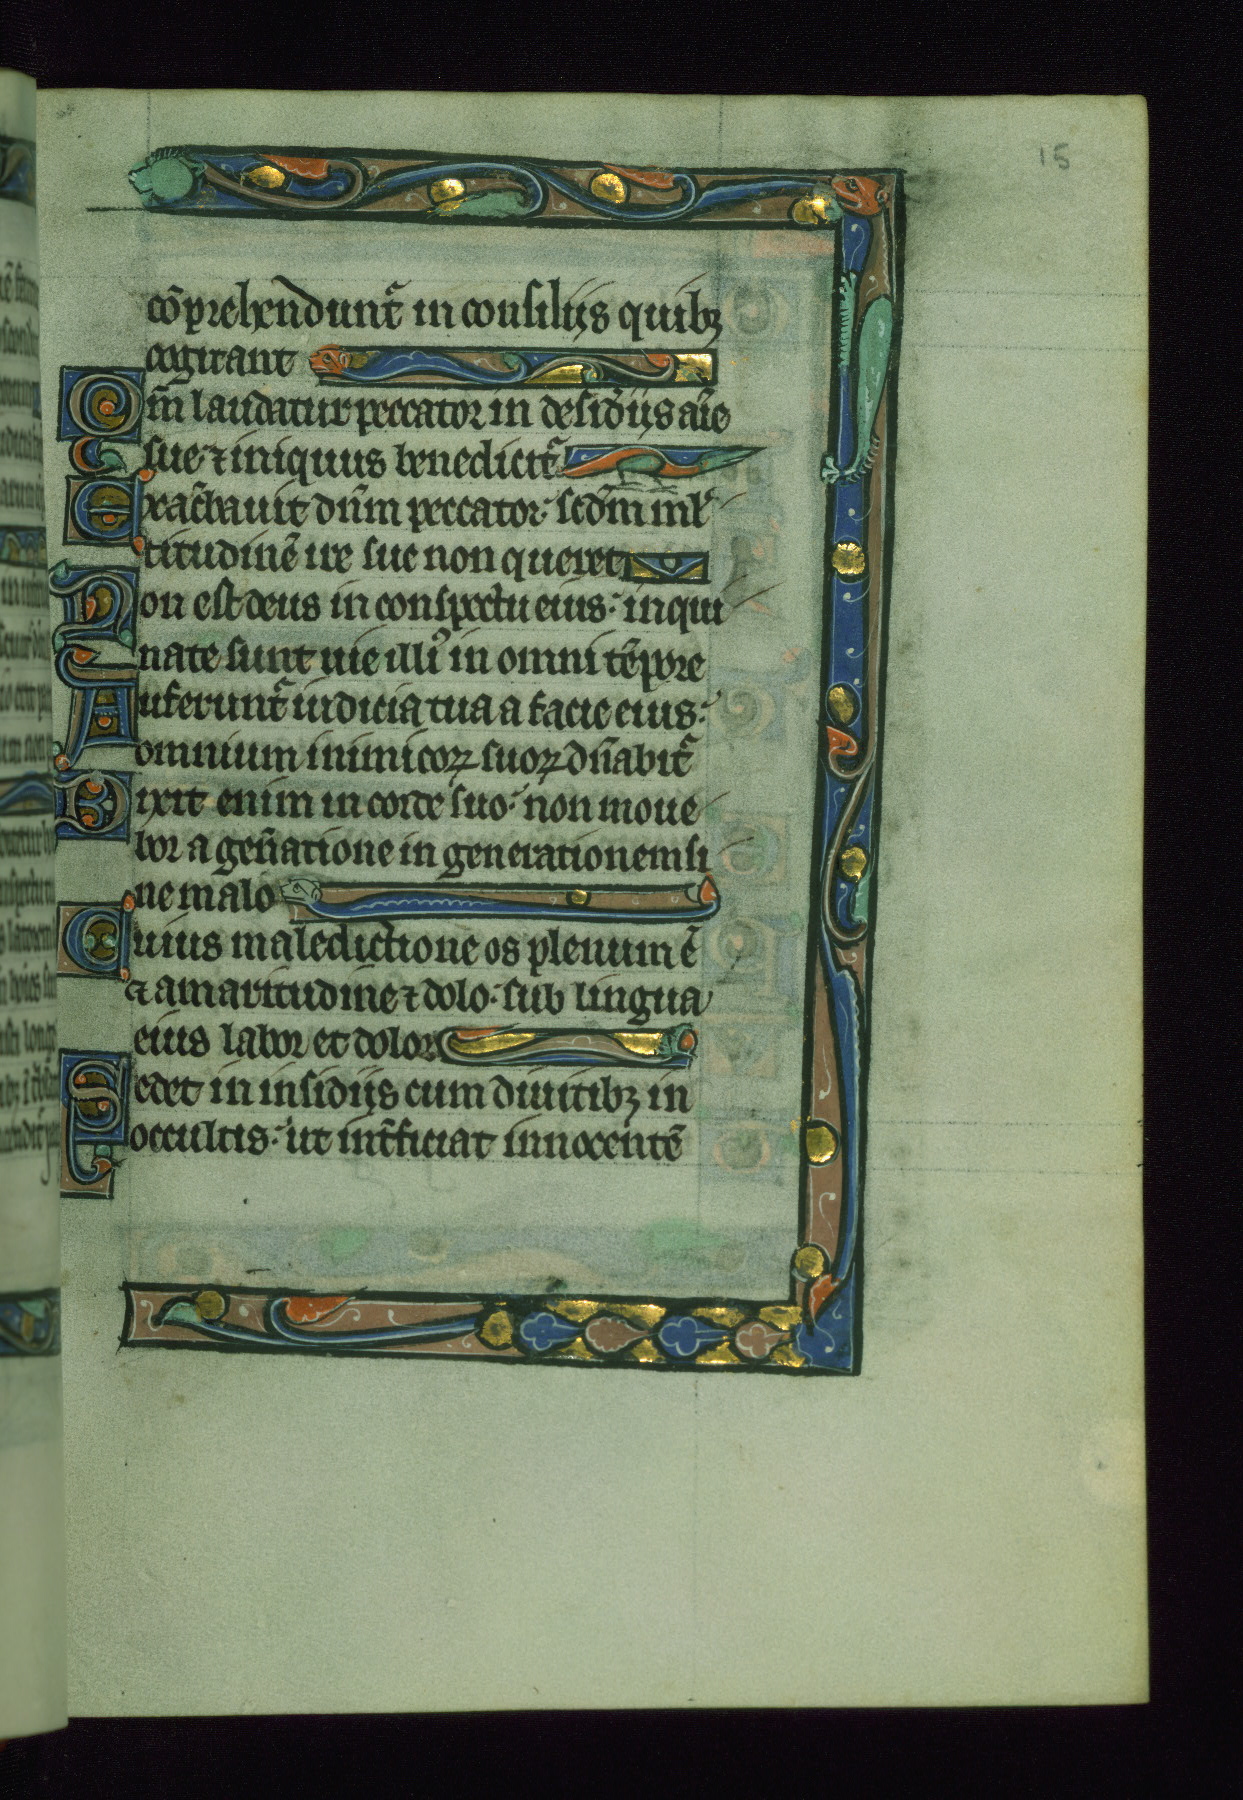 15
cōprehendunt᷑ in consilijs quibꝫ
cogitant
Qm̄ laudatur peccator in desid̓ijs aīe
sue ⁊ iniquus benedicit᷑
Exac̓bauit dūm peccator· scd̄m ml̓
titudinē ire sue non queret
Non est deus in conspectu eius· inqui
nate sunt uie illiꝰ in omni tēpore
Auferunt᷑ iudicia tua a facie eius·
omnium inimicoꝝ suoꝝ dn̄abit᷑
Dixit enim in corde suo· non moue
bor a gen̄atione in generationem si
ne malo
Cuius maledictione os plenum ē
⁊ amaritudine ⁊ dolo· sub lingua
eius labor et dolor
Sedet in insidijs cum diuitibꝫ in
occultis· ut int̄ficiat innocentē